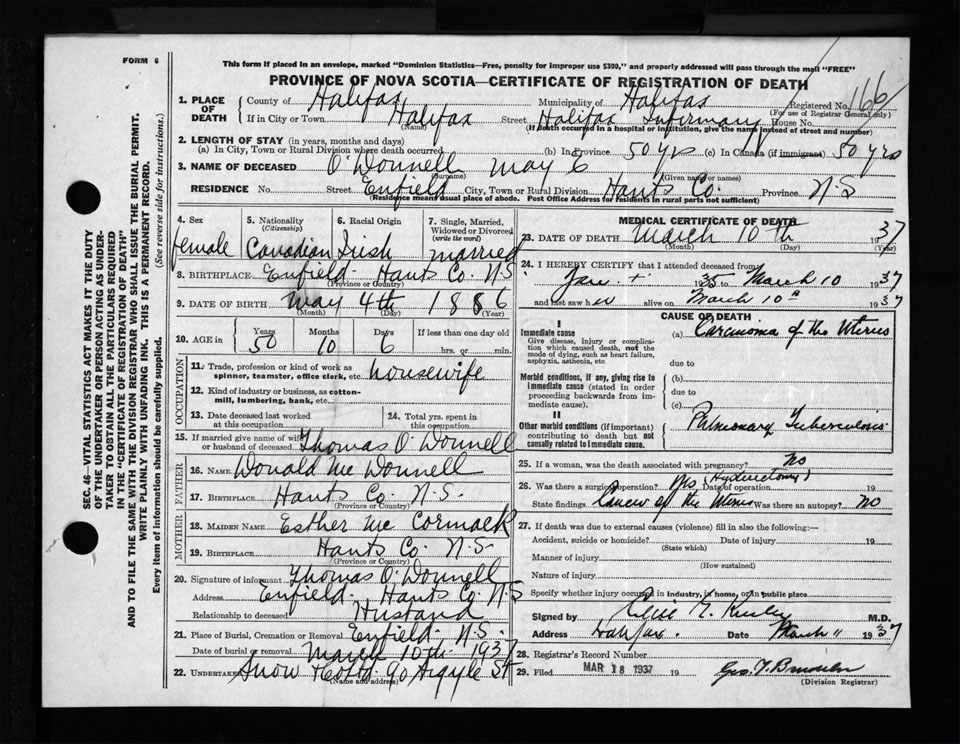 FORM 6
This form if placed in an envelope, marked "Dominion Statistics—Free, penalty for improper use $300," and properly addressed will pass through the mail "FREE"
PROVINCE OF NOVA SCOTIA—CERTIFICATE OF REGISTRATION OF DEATH
1. PLACE OF DEATH County of Halifax Municipality of Halifax Registered No. 166
(For use of Registrar General only)
If in City or Town Halifax Street Halifax Infirmary House No.
(Name) (If death occurred in a hospital or institution, give the name instead of street and number)
2. LENGTH OF STAY (in years, months and days)
(a) In City, Town or Rural Division where death occurred (b) In Province 50 yrs (c) In Canada (if immigrant) 50 yrs
3. NAME OF DECEASED O'Donnell May E
(Surname) (Given name or names)
RESIDENCE No. Street Enfield City, Town or Rural Division Hants Co. Province N-S
(Residence means usual place of abode. Post Office Address for Residents in rural parts not sufficient)
4. Sex female
5. Nationality (Citizenship) Canadian
6. Racial Origin Irish
7. Single, Married, Widowed or Divorced (write the word) married
8. BIRTHPLACE Enfield Hants Co. N-S
(Province or Country)
9. DATE OF BIRTH May 4th 1886
(Month) (Day) (Year)
10. AGE in Years 50 Months 10 Days 6 If less than one day old
hrs. or min.
OCCUPATION
11. Trade, profession or kind of work as spinner, teamster, office clerk, etc. housewife
12. Kind of industry or business, as cotton-mill, lumbering, bank, etc.
13. Date deceased last worked at this occupation
14. Total yrs. spent in this occupation
15. If married give name of wife or husband of deceased Thomas O'Donnell
FATHER
16. NAME Donald Mc Donnell
17. BIRTHPLACE Hants Co. N.S.
(Province or Country)
MOTHER
18. MAIDEN NAME Esther Mc Cormack
19. BIRTHPLACE Hants Co. N.S.
(Province or Country)
20. Signature of informant Thomas O'Donnell
Address Enfield Hants Co. N-S
Relationship to deceased Husband
21. Place of Burial, Cremation or Removal Enfield N.S.
Date of burial or removal March 10th 1937
22. UNDERTAKER Snow & Co Ltd 90 Argyle St
(Name and address)
MEDICAL CERTIFICATE OF DEATH
23. DATE OF DEATH March 10th 1937
(Month) (Day) (Year)
24. I HEREBY CERTIFY that I attended deceased from
Jan. 1935 to March 10 1937
and last saw her alive on March 10th 1937
CAUSE OF DEATH
I
Immediate cause
Give disease, injury or complication which caused death, not the mode of dying, such as heart failure, asphyxia, asthenia, etc.
(a) Carcinoma of the Uterus
due to
Morbid conditions, if any, giving rise to immediate cause (stated in order proceeding backwards from immediate cause).
(b)
due to
(c)
II
Other morbid conditions (if important) contributing to death but not causally related to immediate cause.
Pulmonary Tuberculosis
25. If a woman, was the death associated with pregnancy? No
26. Was there a surgical operation? Yes (Hysterectomy) Date of operation 19
State findings Cancer of the Uterus Was there an autopsy? No
27. If death was due to external causes (violence) fill in also the following:—
Accident, suicide or homicide? Date of injury 19
(State which)
Manner of injury
(How sustained)
Nature of injury
Specify whether injury occurred in industry, in home, or in public place
Signed by M.D.
Address Halifax. Date March 11 1937
28. Registrar's Record Number
29. Filed MAR 18 1937 19
(Division Registrar)
SEC. 46—VITAL STATISTICS ACT MAKES IT THE DUTY
OF THE UNDERTAKER OR PERSON ACTING AS UNDER-
TAKER TO OBTAIN ALL THE PARTICULARS REQUIRED
IN THE "CERTIFICATE OF REGISTRATION OF DEATH"
AND TO FILE THE SAME WITH THE DIVISION REGISTRAR WHO SHALL ISSUE THE BURIAL PERMIT.
WRITE PLAINLY WITH UNFADING INK. THIS IS A PERMANENT RECORD.
Every item of information should be carefully supplied. (See reverse side for instructions.)